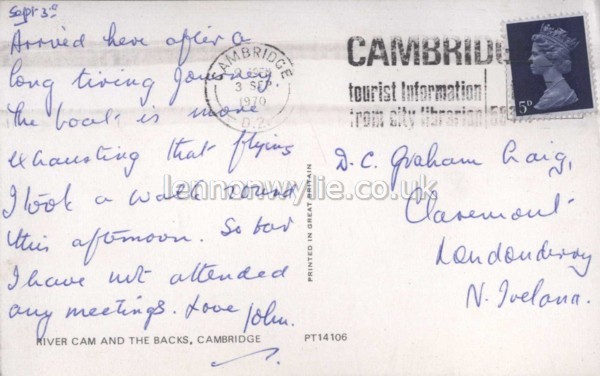 Sept 3rd
Arrived here after a
long tiring journey.
The boat is more
exhausting that flying
I took a walk round
this afternoon. So far
I have not attended
any meetings. Love John.
RIVER CAM AND THE BACKS, CAMBRIDGE
PT14106
CAMBRIDGE
3 SEP
1970
CAMBRIDG
tourist information
from city librarian
5D
PRINTED IN GREAT BRITAIN
D.C. Graham Craig,
Claremont
Londonderry
N. Ireland.
lennonwylie.co.uk